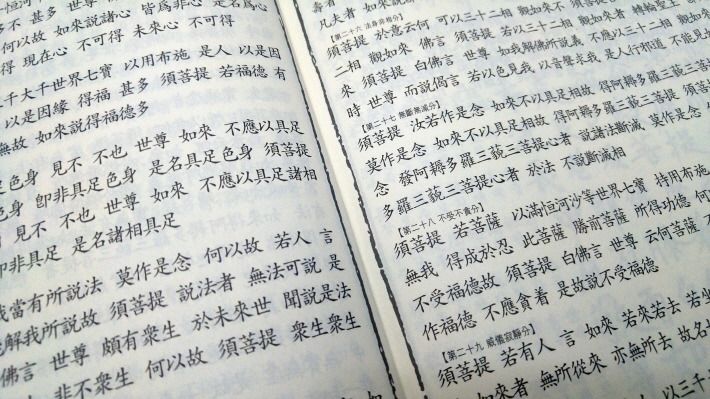 甚多 世尊 何以故 如來說諸心 皆爲非心 是名爲心
何以故 如來說諸心 皆爲非心 是名爲心
得 現在心 不可得 未來心 不可得
三千大千世界七寶 以用布施 是人 以是因
以是因緣 得福 甚多 須菩提 若福德 有
無故 如來說得福德多
色身 見不 不也 世尊 如來 不應以具足
色身 卽非具足色身 是名具足色身 須菩提
見不 不也 世尊 如來 不應以具足諸相
卽非具足 是名諸相具足
我當有所說法 莫作是念 何以故 若人 言
能解我所說故 須菩提 說法者 無法可說 是
佛言 世尊 頗有衆生 於未來世 聞說是法
非不衆生 何以故 須菩提 衆生衆生
凡夫者 如來說
[第二十六 法身非相分]
須菩提 於意云何 可以三十二相 觀如來不
二相 觀如來 佛言 須菩提 若以三十二相 觀如來者 轉輪聖王
來 須菩提 白佛言 世尊 如我解佛所說義 不應以三十二相 觀如來
時 世尊 而說偈言 若以色見我 以音聲求我 是人行邪道 不能見如
[第二十七 無斷無滅分]
須菩提 汝若作是念 如來不以具足相故 得阿耨多羅三藐三菩提
莫作是念 如來不以具足相故 得阿耨多羅三藐三菩提 須菩提
念 發阿耨多羅三藐三菩提心者 說諸法斷滅 莫作是念
多羅三藐三菩提心者 於法 不說斷滅相
[第二十八 不受不貪分]
須菩提 若菩薩 以滿恒河沙等世界七寶 持用布施
無我 得成於忍 此菩薩 勝前菩薩 所得功德 何
不受福德故 須菩提 白佛言 世尊 云何菩薩 不
作福德 不應貪着 是故說不受福德
[第二十九 威儀寂靜分]
須菩提 若有人 言 如來 若來若去 若坐
如來者 無所從來 亦無所去 故名
以三千